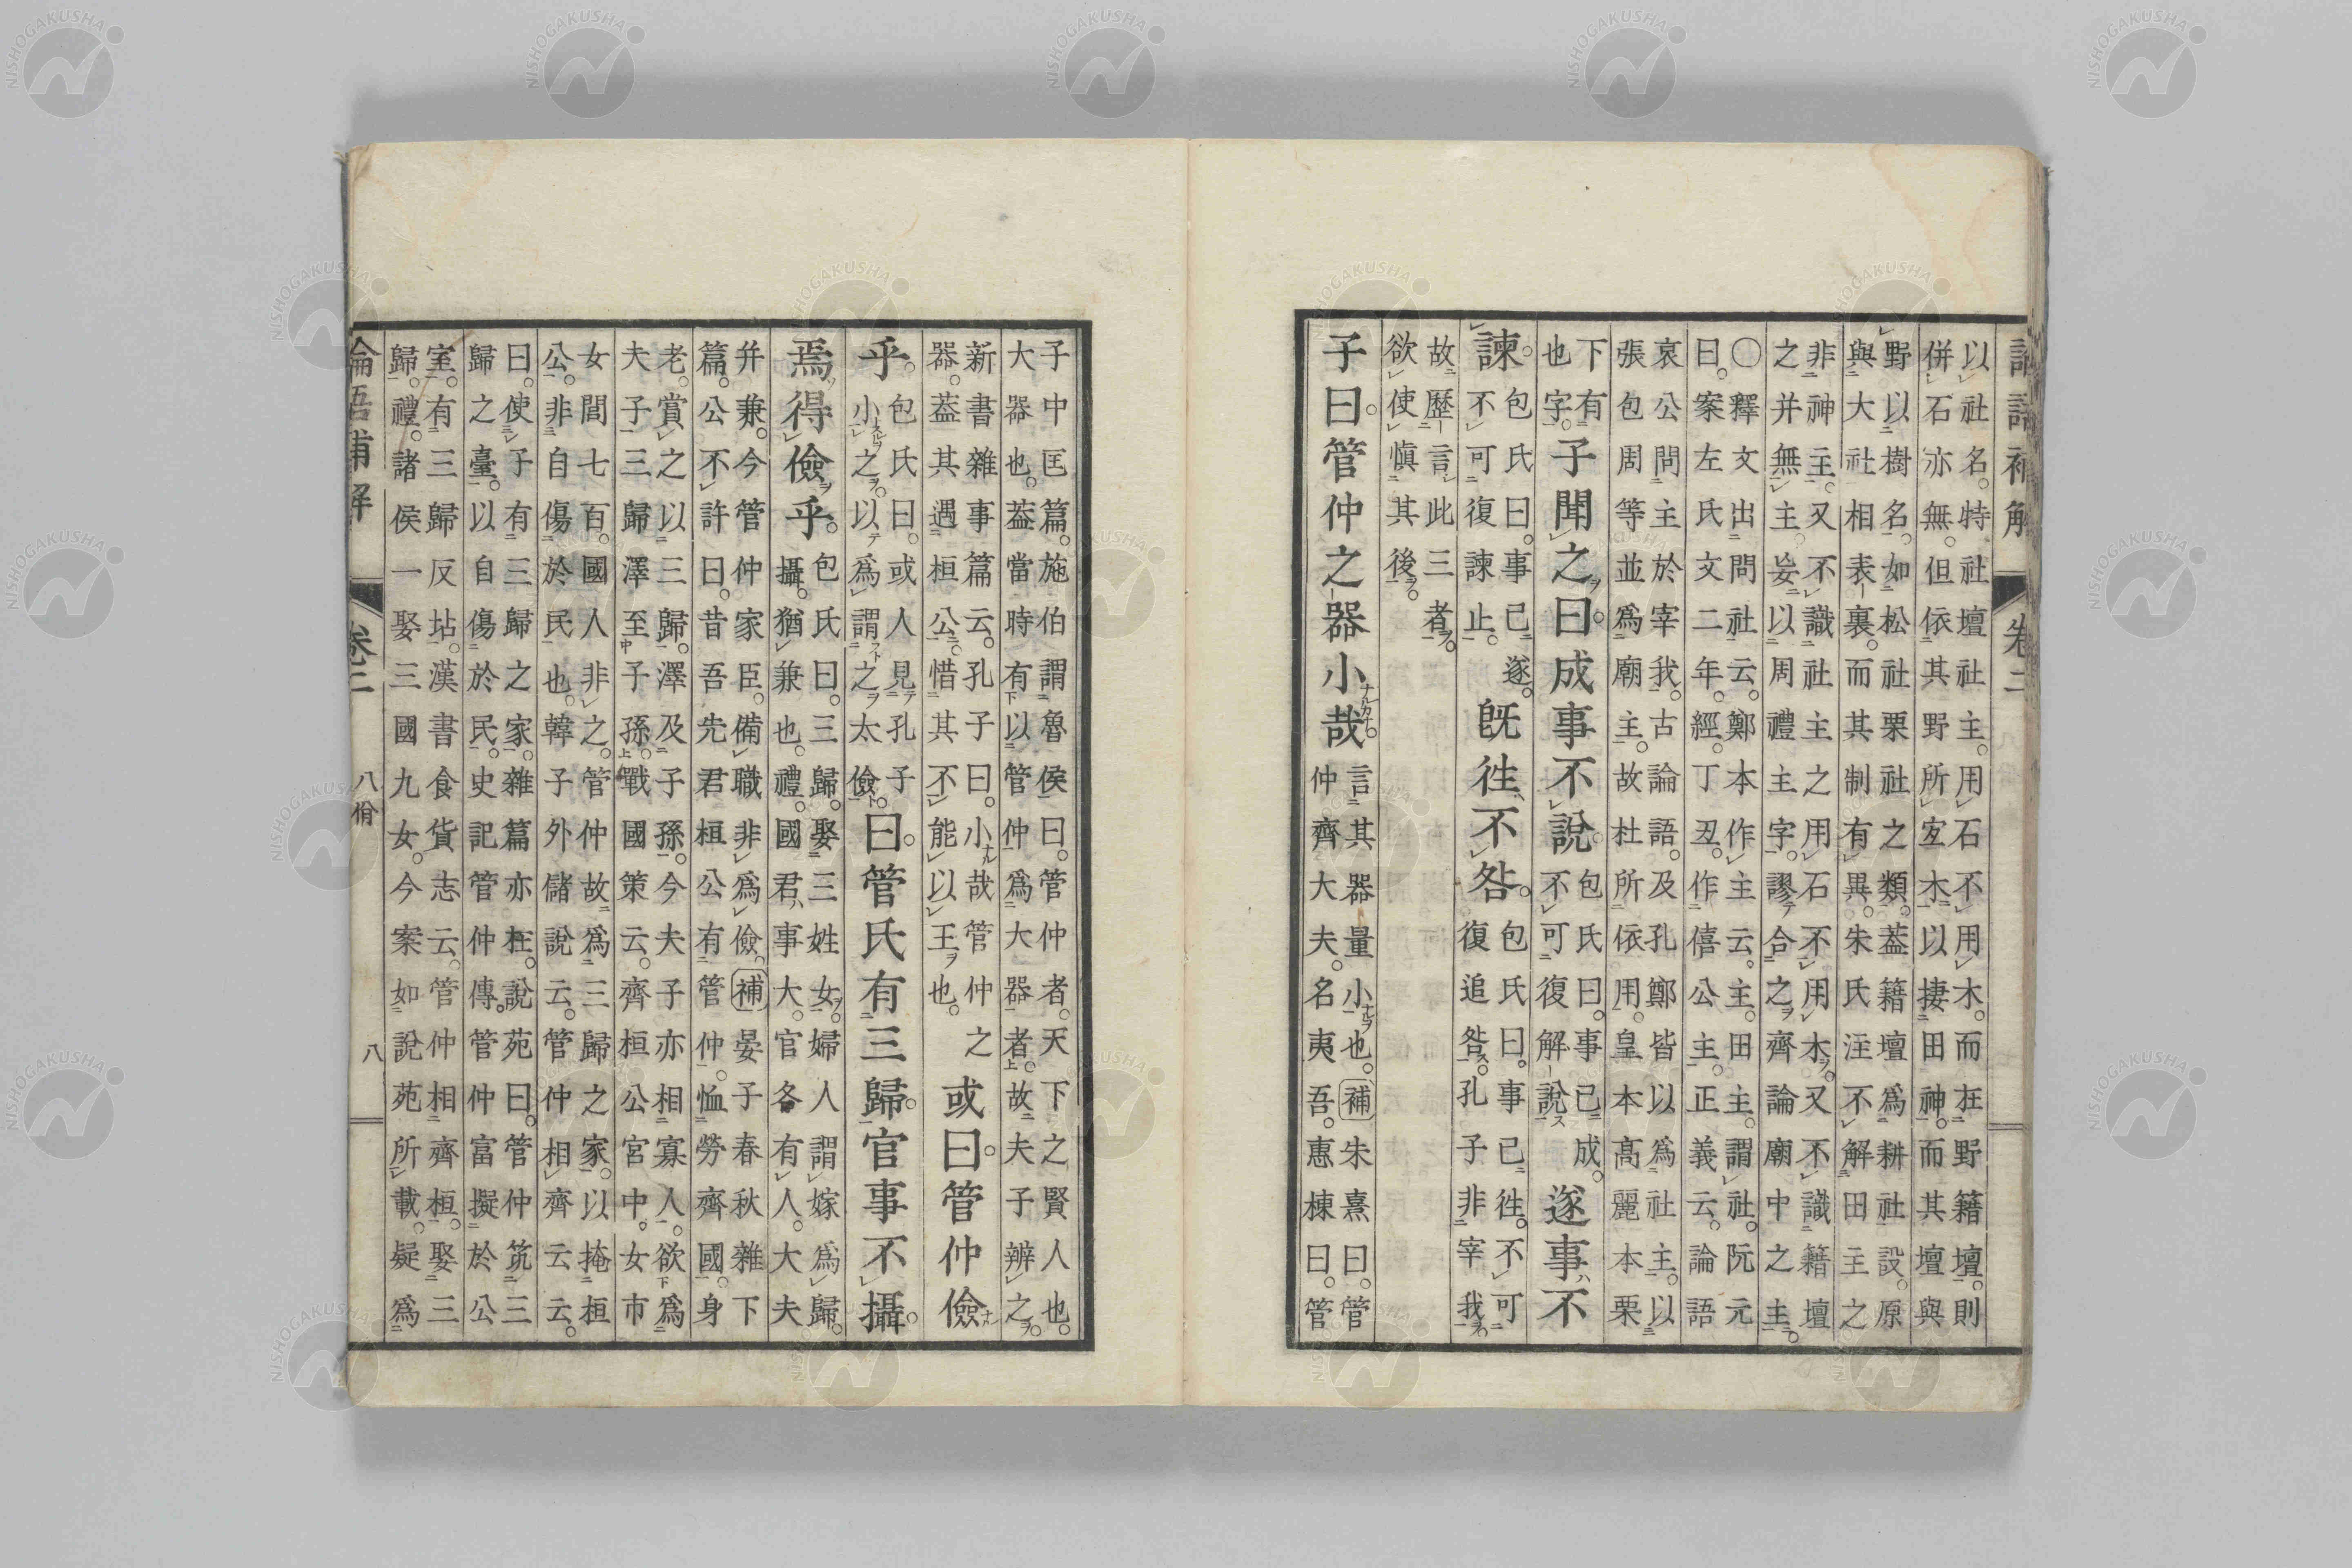 語補解 卷二
以社名。特社壇社主。用石不用木。而在野籍壇。則
併石亦無。但依其野所宜木。以捿田神。而其壇與
野以樹名。如松社栗社之類。蓋籍壇爲耕社設。原
與大社相表裏。而其制有異。朱氏注不解田主之
非神主。又不識社主之用石不用木。又不識籍壇
之并無主。妄以周禮主字。謬合之齊論廟中之主。
〇釋文出問社云。鄭本作主云。主。田主。謂社。阮元
曰。案左氏文二年。經。丁丑。作僖公主。正義云。論語
哀公問主於宰我。古論語。及孔鄭皆以爲社主。以
張包周等並爲廟主。故杜所依用。皇本高麗本栗
下有
也字。
子聞之。曰。成事不說。
包氏曰。事已成。
不可復解說
遂事不
諫。
包氏曰。事已遂。
不可復諫止。
既往不咎。
包氏曰。事已往。不可
復追咎。孔子非宰我。
故歷言此三者。
欲使愼其後。
子曰。管仲之器小哉。
言其器量小也。補朱熹曰。管
仲齊大夫。名夷吾。惠棟曰。管
子中匡篇。施伯謂魯侯曰。管仲者。天下之賢人也。
大器也。蓋當時有以管仲爲大器者。故夫子辨之。
新書雜事篇云。孔子曰。小哉管仲之
器。蓋其遇桓公。惜其不能以王也。
或曰。管仲儉
乎。
包氏曰。或人見孔子
小之。以爲謂之太儉。
曰。管氏有三歸。官事不攝。
焉得儉乎。
包氏曰。三歸。娶三姓女。婦人謂嫁爲歸。
攝。猶兼也。禮。國君事大。官各有人。大夫
并兼。今管仲家臣。備職非爲儉。補晏子春秋雜下
篇。公不許曰。昔吾先君桓公有管仲。恤勞齊國。身
老。賞之以三歸。澤及子孫。今夫子亦相寡人。欲爲
夫子三歸。澤至子孫。戰國策云。齊桓公宮中。女市
女閭七百。國人非之。管仲故爲三歸之家。以掩桓
公。非自傷於民也。韓子外儲說云。管仲相齊云云。
曰。使子有三歸之家。雜篇亦在。說苑曰。管仲筑三
歸之臺。以自傷於民。史記管仲傳。管仲富擬於公
室。有三歸反坫。漢書食貨志云。管仲相齊桓。娶三
歸。禮。諸侯一娶三國九女。今案如說苑所載。疑爲
論語補解 卷二 八佾 八
NISHOGAKUSHA